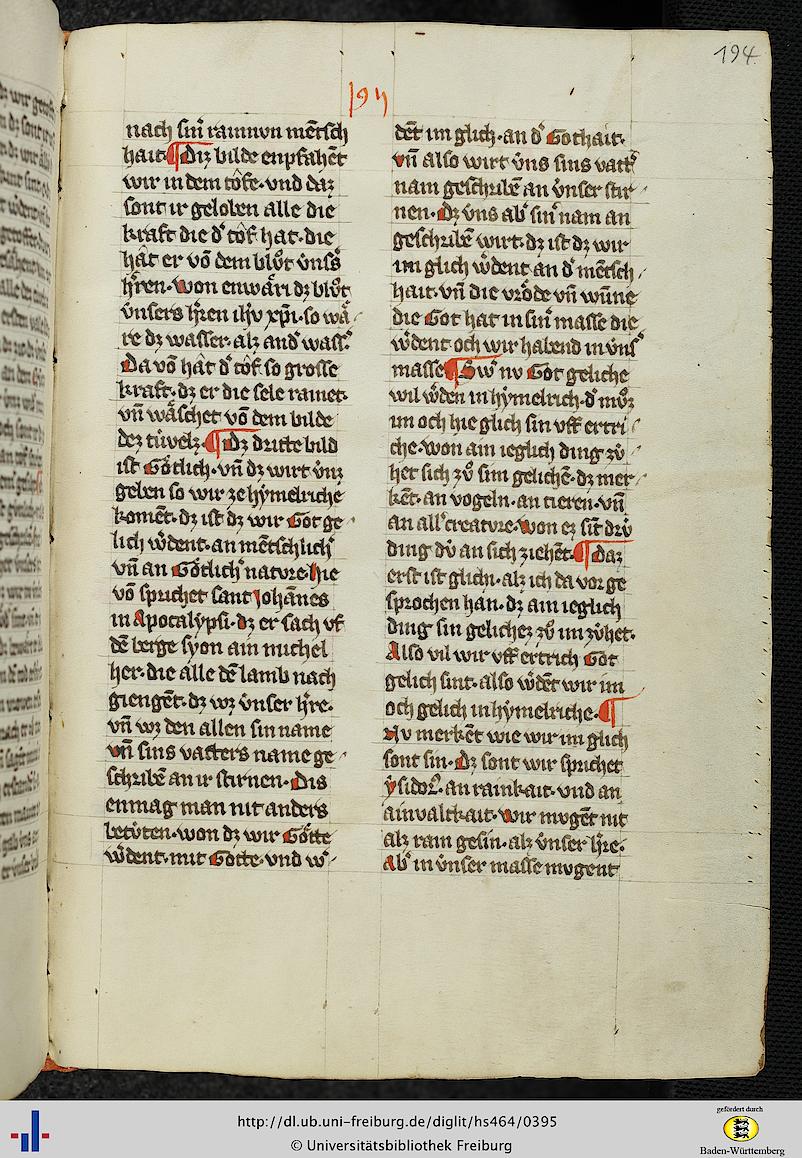 194
nach sinr rainnvn mētsch
hait ¶ Diz bilde enpfahēt
wir in dem tôfe · vnd daz
sont ir geloben alle die
kraft die d' tôf hat · die
hât er vō dem blůt v̓nsˢ
h̄ren · won enwåri dz blůt
v̓nsers h̄ren ihv xp̄i · so wå
re dz wasser · alz and' wassˢ.
Da vō hât d' tôf so grosse
kraft · dz er die sele rainet ·
vn̄ wåschet vō dem bilde
dez tùvelz · ¶ Dz dritte bild
ist Götlich · vn̄ dz wirt v̓nz
geben so wir ze hẏmelriche
komēt · dz ist dz wir Got ge
lich w̓dent · an mētschlich'
vn̄ an Götlich' natvre · hie
vō sprichet sant Johānes
in Apocalẏpsi · dz er sach vf
dē berge sẏon ain michel
her · die alle dē lamb nach
giengēt · dz wz v̓nser h̄re ·
vn̄ wz den allen sin name
vn̄ sins vatters name ge
schribē an ir stirnen · Dis
enmag man nit anders
betùten · won dz wir Götte
w̓dent · mit Gotte · vnd w̓
dēt im glich · an d' Gothait ·
vn̄ also wirt v̓ns sins vattˢ
nam geschribē an v̓nser stir
nen · Dz v̓ns ab' sinˢ nam an
geschribē wirt · dz ist dz wir
im glich w̓dent an d' mētsch
hait · vn̄ die vrôde vn̄ wūne
die Got hat in sinˢ masse die
w̓dent och wir habend in v̓nsˢ
masse ¶ Sw' nv Got geliche
wil w̓den in hẏmelrich · d' můz
im och hie glich sin vff ertri
che · won ain ieglich ding zů
het sich zů sim gelichē · dz mer
kēt · an vogeln · an tieren · vn̄
an allˢ creatvre · won ez sīt drù
ding dù an sich ziehēt · ¶ Daz
erst ist glichi · alz ich da vor ge
sprochen han · dz ain ieglich
ding sin gelichez zů im zùhet ·
Also vil wir vff ertrich Got
gelich sint · also w̓dēt wir im
och gelich in hẏmelriche · ¶
Nv merkēt wie wir im glich
sont sin · Dz sont wir sprichet
ẏsidor᷒ · an rainkait · vnd an
ainvaltkait · wir mvgēt nit
alz rain gesin · alz v̓nser h̄re ·
Ab' in v̓nser masse mvgent
http://dl.ub.uni-freiburg.de/diglit/hs464/0395
© Universitätsbibliothek Freiburg
gefördert durch
Baden-Württemberg